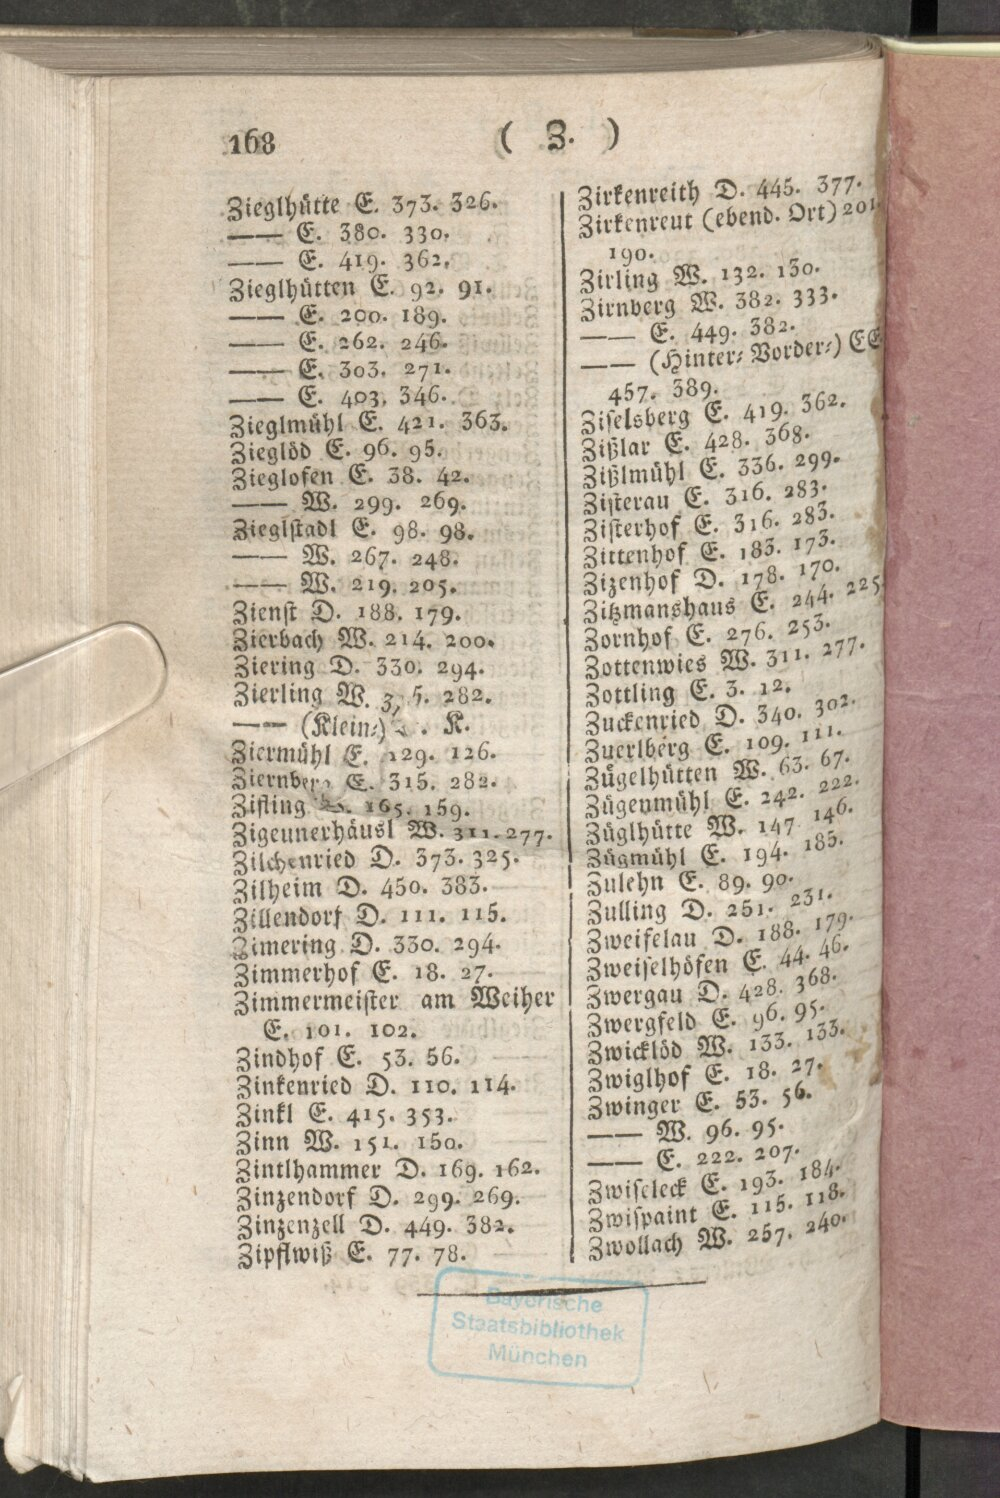 168
( Z. )
Zieglhütte E. 373. 326.
—— E. 380. 330.
—— E. 419. 362.
Zieglhütten E. 92. 91.
—— E. 200. 189.
—— E. 262. 246.
—— E. 303. 271.
—— E. 403. 346.
Zieglmühl E. 421. 363.
Zieglöd E. 96. 95.
Zieglofen E. 38. 42.
—— W. 299. 269.
Zieglstadl E. 98. 98.
—— W. 267. 248.
—— W. 219. 205.
Zienst D. 188. 179.
Zierbach W. 214. 200.
Ziering D. 330. 294.
Zierling W. 282.
—— (Klein-) K.
Ziermühl E. 129. 126.
Ziernberg E. 315. 282.
Zifling 165. 159.
Zigeunerhäusl W. 311. 277.
Zilchenried D. 373. 325.
Zilheim D. 450. 383.
Zillendorf D. 111. 115.
Zimering D. 330. 294.
Zimmerhof E. 18. 27.
Zimmermeister am Weiher
E. 101. 102.
Zindhof E. 53. 56.
Zinkenried D. 110. 114.
Zinkl E. 415. 353.
Zinn W. 151. 150.
Zintlhammer D. 169. 162.
Zinzendorf D. 299. 269.
Zinzenzell D. 449. 382.
Zipflwiß E. 77. 78.
Zirkenreith D. 445. 377.
Zirkenreut (ebend. Ort) 201.
190.
Zirling W. 132. 130.
Zirnberg W. 382. 333.
—— E. 449. 382.
—— (Hinter- Vorder-) EE
457. 389.
Ziselsberg E. 419. 362.
Zißlar E. 428. 368.
Zißlmühl E. 336. 299.
Zisterau E. 316. 283.
Zisterhof E. 316. 283.
Zittenhof E. 183. 173.
Zizenhof D. 178. 170.
Zitzmanshaus E. 244. 225.
Zornhof E. 276. 253.
Zottenwies W. 311. 277.
Zottling E. 3. 12.
Zuckenried D. 340. 302.
Zuerlberg E. 109. 111.
Zügelhütten W. 63. 67.
Zügenmühl E. 242. 222.
Züglhütte W. 147 146.
Zügmühl E. 194. 185.
Zulehn E. 89. 90.
Zulling D. 251. 231.
Zweifelau D. 188. 179.
Zweiselhöfen E. 44. 46.
Zwergau D. 428. 368.
Zwergfeld E. 96. 95.
Zwicklöd W. 133. 133.
Zwiglhof E. 18. 27.
Zwinger E. 53. 56.
—— W. 96. 95.
—— E. 222. 207.
Zwiseleck E. 193. 184.
Zwispaint E. 115. 118.
Zwollach W. 257. 240.
Bayerische
Staatsbibliothek
München